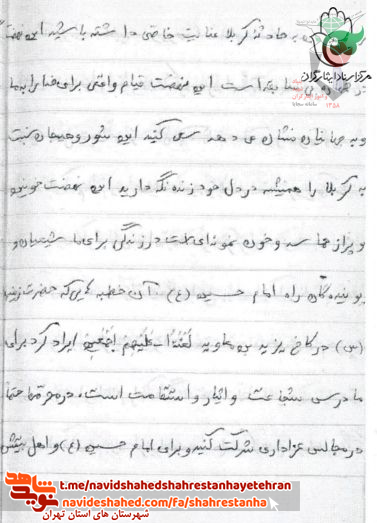 به حادثه کربلا عنایت خاصی داشته باشید این نهضت
مرکز اسناد ایثارگران
است این نهضت قیام واقعی برای خدا را به ما
و به جهانیان نشان می دهد سعی کنید این شور و هیجان نسبت
به کربلا را همیشه در دل خود زنده نگه دارید این نهضت خونین
و پر از حماسه و خون نمونه ای است در زندگی برای ما شیعیان و
پویندگان راه امام حسین (ع) آن خطبه که حضرت زینب
(س) در کاخ یزید بن معاویه لَعْنَةُ اللهِ عَلَیْهِمْ اَجْمَعین ایراد کرد برای
ما درس شجاعت و ایثار و استقامت است، در محرم ها حتما
در مجالس عزاداری شرکت کنید و برای امام حسین (ع) و اهل بیتش
نوید شاهد
t.me/navidshahedshahrestanhayetehran
navideshahed.com/fa/shahrestanha
شهرستان های استان تهران